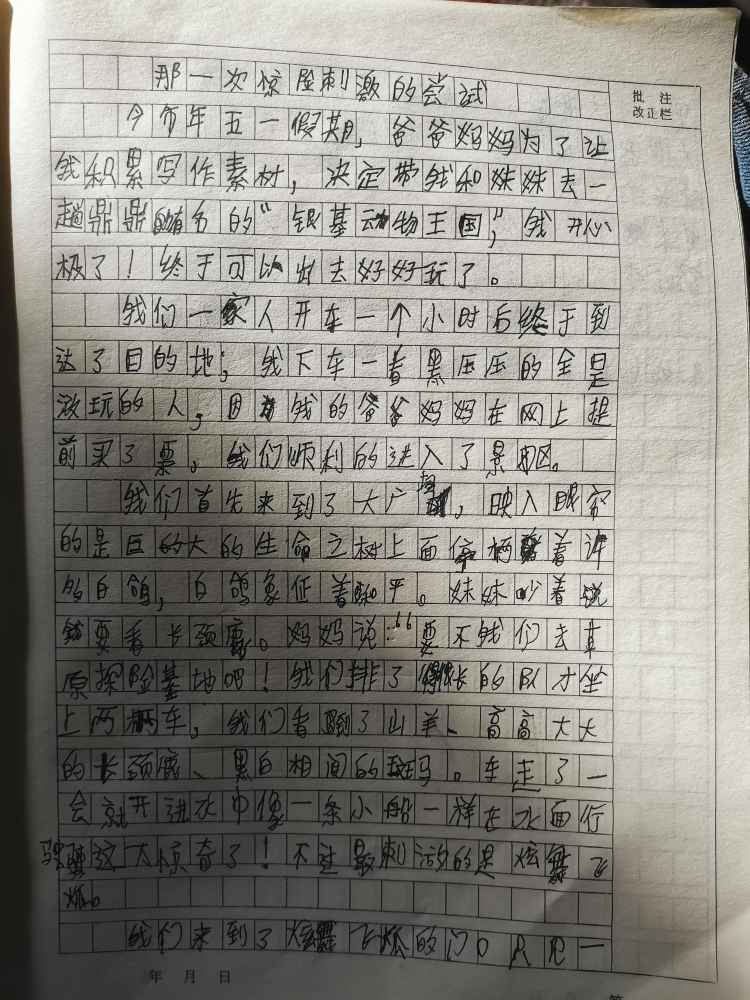 那一次惊险刺激的尝试
批注
改正栏
今年五一假期，爸爸妈妈为了让
我积累写作素材，决定带我和妹妹去一
趟鼎鼎有名的“银基动物王国”，我开心
极了！终于可以出去好好玩了。
我们一家人开车一个小时后终于到
达了目的地；我下车一看黑压压的全是
游玩的人，因为我的爸爸妈妈在网上提
前买了票，我们顺利的进入了景区。
我们首先来到了大广场，映入眼帘
的是巨大的生命之树上面停栖着许
多白鸽，白鸽象征着和平。妹妹吵着说
要看长颈鹿。妈妈说：“要不我们去草
原探险基地吧！我们排了长的队才坐
上两辆车，我们看到了山羊、高高大大
的长颈鹿、黑白相间的斑马。车走了一
会就开进水中像一条小船一样在水面行
驶这大惊奇了！不过最刺激的是炫舞飞
狐。
我们来到了炫舞飞狐的门口只见一
年 月 日